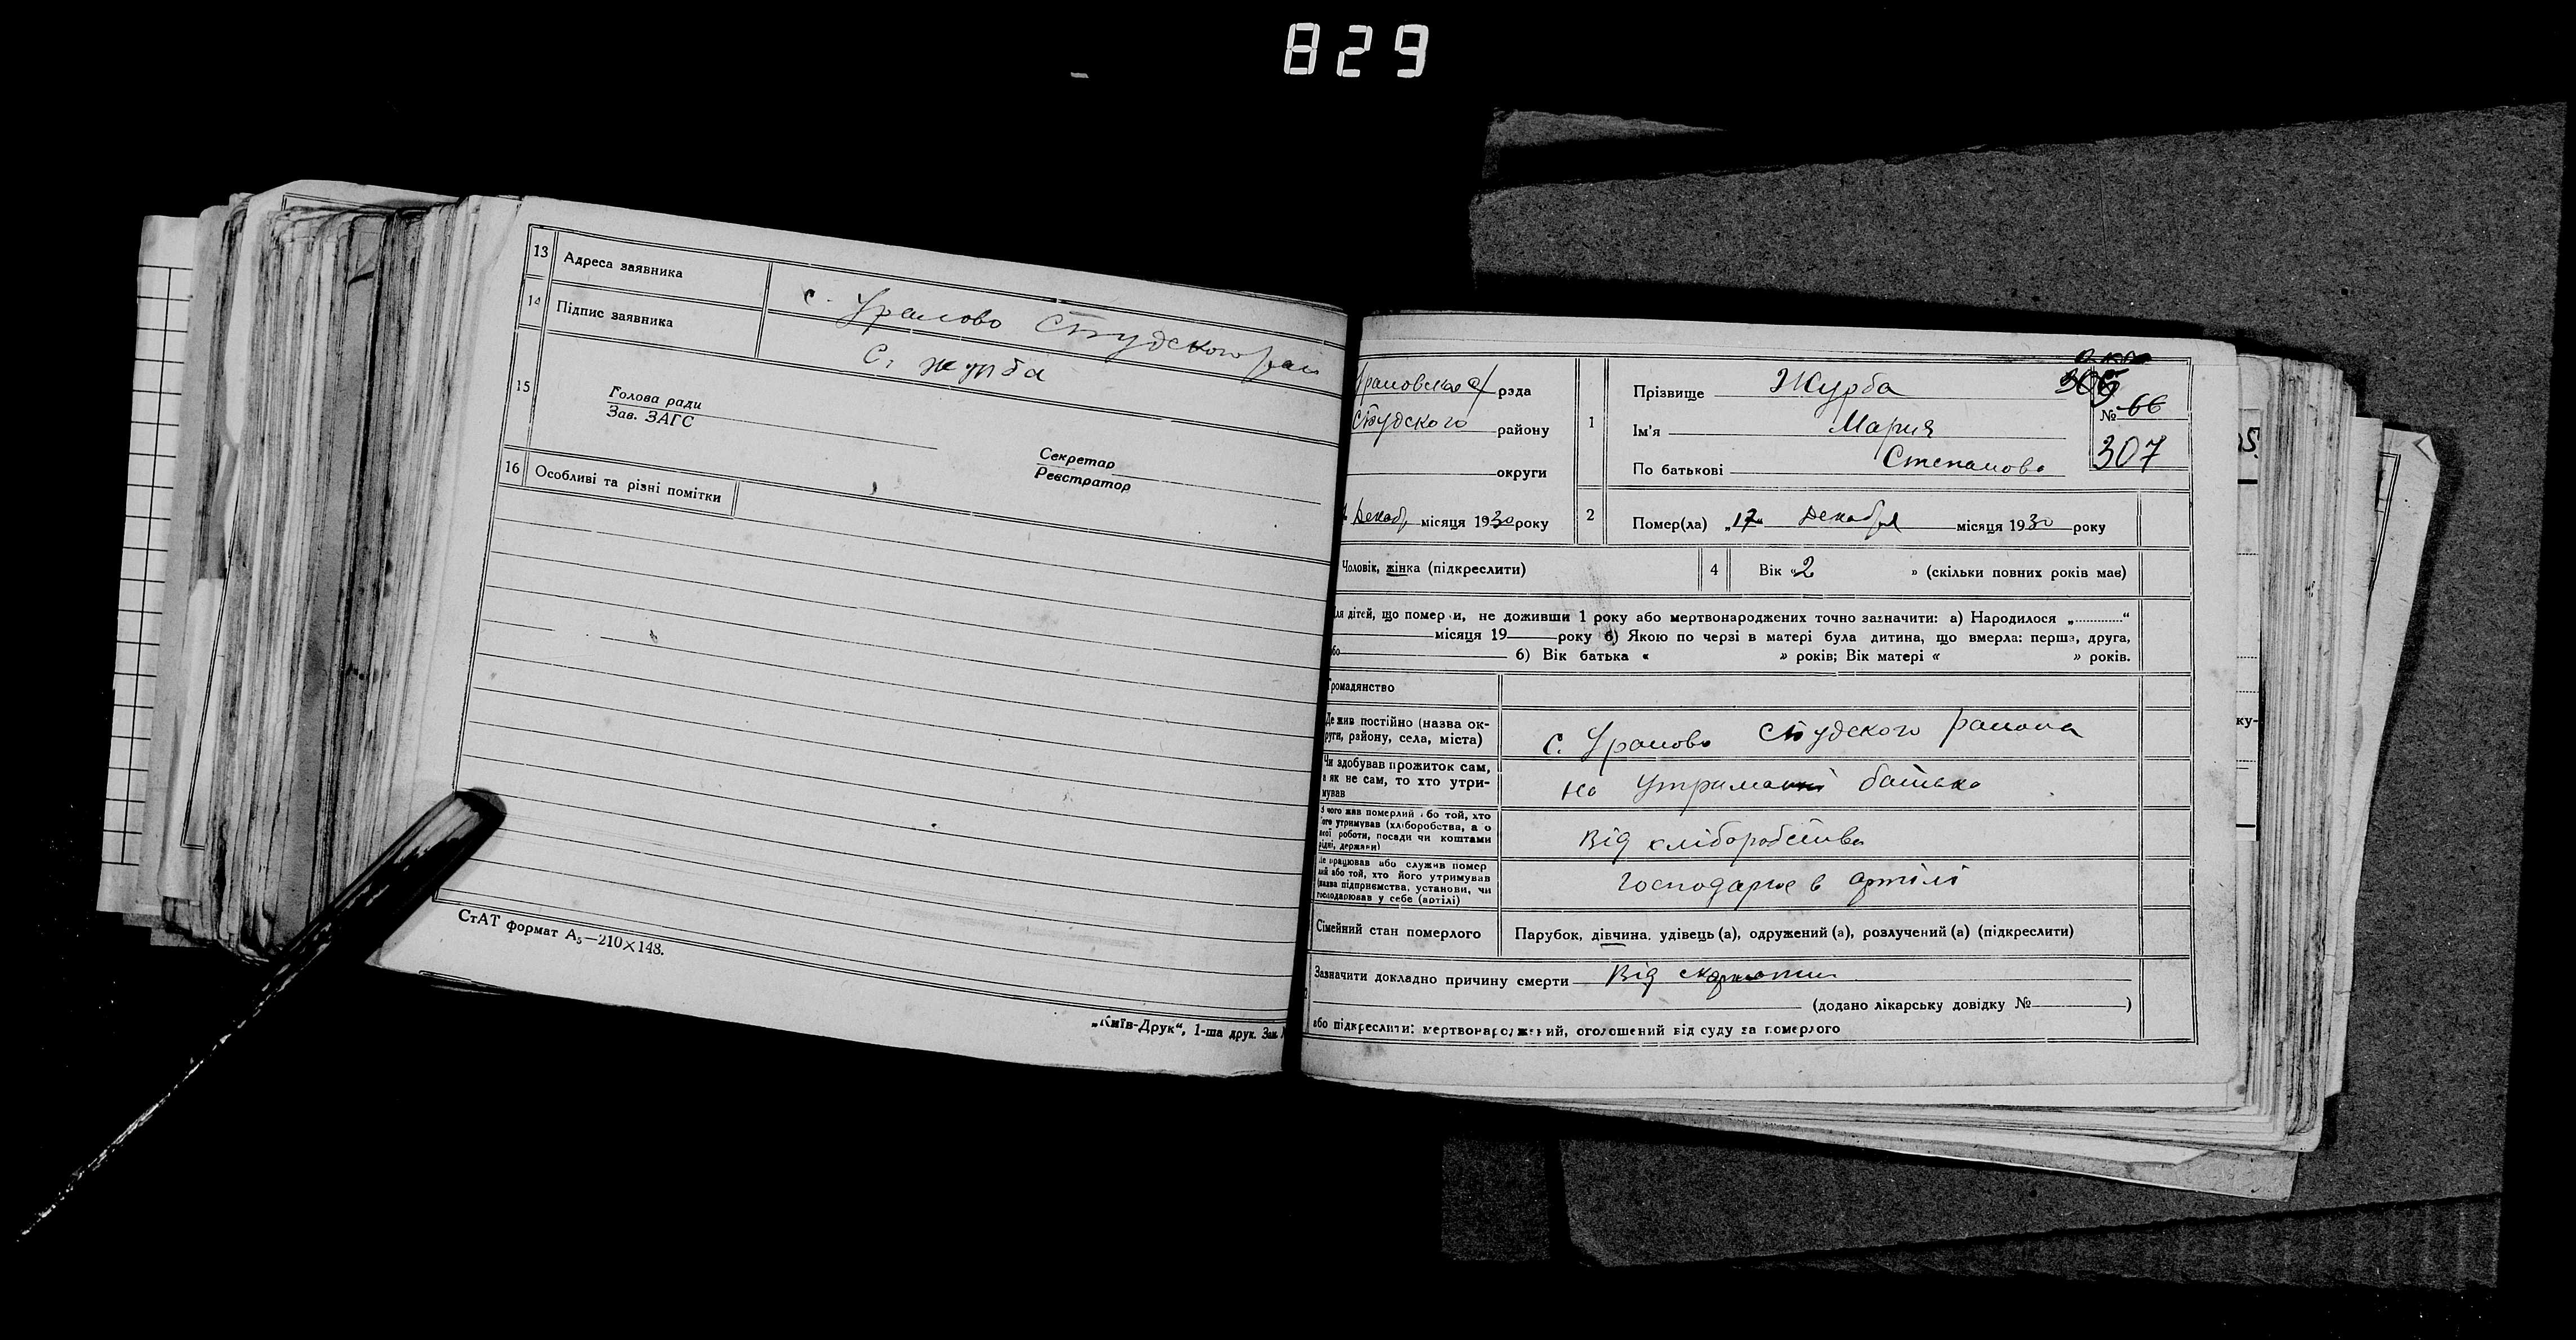 829
13 Адреса заявника
с. Уралово Студского рай
14 Підпис заявника
С. журба
15
Голова ради
Зав. ЗАГС
Секретар
Реєстратор
16 Особливі та різні помітки
СтАТ формат А5—210×148.
„Київ-Друк“, 1-ша друк. Зам.
раловская рада
Студского району
округи
Декабр місяця 1930 року
1 Прізвище Журба
Ім'я Мария
По батькові Степановa
№ 66
307
2 Помер(ла) „17“ Декабря місяця 1930 року
Чоловік, жінка (підкреслити)
4 Вік «2 » (скільки повних років має)
ля дітей, що померли, не доживши 1 року або мертвонароджених точно зазначити: а) Народилося „............“
місяця 19 року б) Якою по черзі в матері була дитина, що вмерла: перша, друга,
бо 6) Вік батька « » років; Вік матері « » років.
ромадянство
Де жив постійно (назва ок-
руги, району, села, міста)
с. Уралово Студского района
Чи здобував прожиток сам,
а як не сам, то хто утри-
мував
на утриманні батька
З чого жив померлий або той, хто
його утримував (хліборобства, а о
якої роботи, посади чи коштами
рідні, держави)
Від хліборобства
Де працював або служив помер
лий або той, хто його утримував
(назва підприємства, установи, чи
господарював у себе (артілі)
господарює в артілі
Сімейний стан померлого
Парубок, дівчина, удівець (а), одружений (а), розлучений (а) (підкреслити)
Зазначити докладно причину смерти Від
(додано лікарську довідку № )
або підкреслити: мертвонароджений, оголошений від суду за померлого